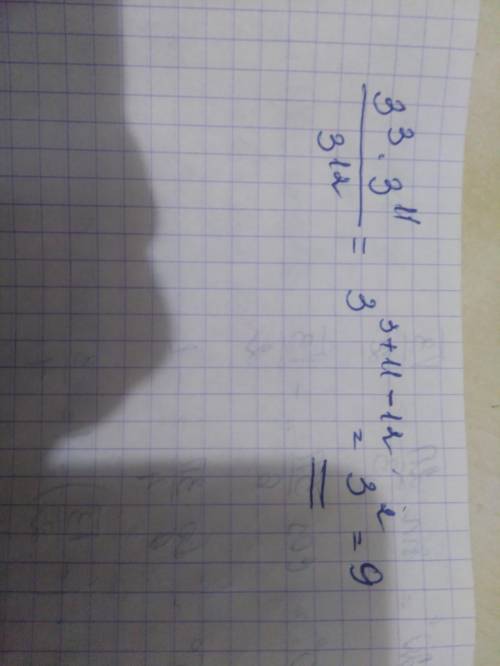 3³ · 3¹¹ / 3¹² = 3³⁺¹¹⁻¹² = 3² = 9